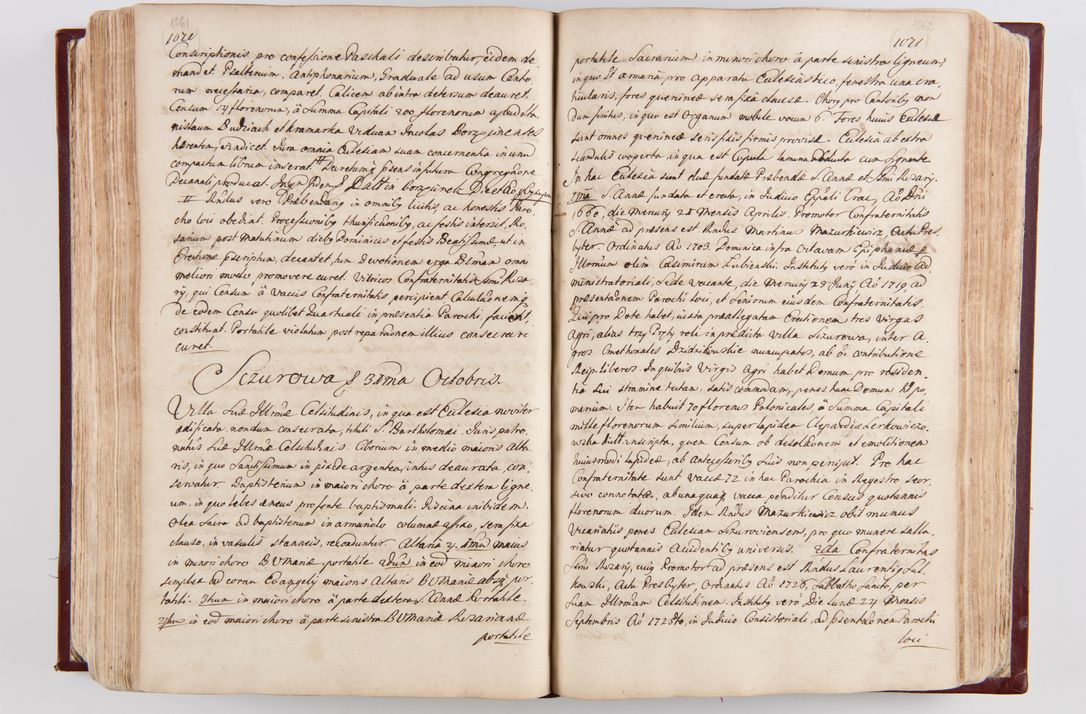 1061
1071
Conscriptionis pro confessione Paschali describatur, eidem de
mandet Psalterium, Antiphonarium, Graduale ad usum Canto
rum necessaria, comparet. Calicem ab intra detersum deauret.
Censum 14 florenorum, à Summa Capitali 200 florenorum apud Sta
nislaum Dudziack et Kramarka Viduam Incolas Borzęcinenses
hærentem, vindicet. Jura omnia Ecclesiam suam concernentia in unum
compactum librum inserat
Decanali producat. In quorum fidem Datt in Borzęcinek Die et Aõ
Rndus vero Præbendarius in omnibus licitis, ac honestis Paro
cho loci obediat. Processionibus thurificationibus, ac festis intersit, Ro
sarium post Matutinum diebus Dominicis et festis Beatissimæ ut in
Erectione præscriptum, decantet, suam Devotionem erga Dei omni
meliori modo, promovere curet. Vitricos Confraternitatis Smi Rosa
rij, qui Censum à Vaccis Confraternitatis, percipient Calculationemq
de eodem Censu quolibet Quartuali in præsentia Parochi, faciant,
constituat. Portatile violatum post reparationem illius consecrare
curet.
Sczurowa § 31ma Octobris.
Villa Suæ Illmæ Celsitudinis, in qua est Ecclesia noviter
ædificata, nondum consecrata, tituli Sti Bartholomæi. Juris patro
natus Suæ Illmæ Celsitudinis. Ciborium in medio maioris Alta
ris, in quo Sanctissimum in pixide argentea, intus deaurata, con
servatur. Baptisterium in maiori choro à parte dextera ligne
um, in quo lebes æneus pro fonte baptismali. Piscina inibidem.
Olea Sacra ad baptisterium in armariolo columnæ affixo, sem fixa
clauso, in vasculis stanneis, reconduntur. Altaria 4. 1mum maius
in minori choro BVMariæ portatile. 2dum in eod minori choro
simplex ad cornu Evangelij maioris Altaris BVMariæ absq por
tatili. 3tium in maiori choro à parte dextera S. Annæ Portatile
in eod maiori choro à parte sinistra BVMariæ Rosarianæ
portatile
1062
1071
portatile Sacrarium in minori choro à parte sinistra ligneum,
in quo armaria, pro apparatu Ecclesiastico, fenestra una cra
ticularis, fores querineæ sem fixa clausæ. Chorus pro Cantoribus non
dum pictus, in quo est Organum mobile vocum 6. Fores huius Ecclesiæ
sunt omnes querineæ seris fixis firmis provisæ. Ecclesia ab extra
scandulis cooperta, in qua est Cupula lamina obducta cum signante.
In hac Ecclesia sunt duæ fundatæ Præbendæ S. Annæ et Smi Rosarij.
1ma S. Annæ fundata et erecta, in Judicio Eppali Crac, Aõ Dni
1660, die Mercurij 28 Mensis Aprilis. Promotor Confraternitatis
S. Annæ ad præsens est Rndus Martinus Mazurkiewicz, Actu Pres
byter. Ordinatus Aõ 1703. Dominica infra Octavam Epiphaniæ p
Illmum olim Casimirum Lubienski. Institutus vero in Judicio Ad
ministratoriali, Sede Vacante, die Mercurij 28 Junij Aõ 1719, ad
præsentationem Parochi loci, et Seniorum eiusdem Confraternitatis.
Qui pro Dote habet, iuxta præallegatam Erectionem tres virgas
agri, alias trzy Pręty roli in prædicta Villa Sczurowa, inter A
gros Cmethonales Dzidzikowskie nuncupatos, ab oi contributione
Reip: liberos. In quibus Virgis Agri habet Domum pro residen
tia sui stramine tectam, satis commodam, penes hanc Domum est po
marium. Item habuit 70 florenos Polonicales, à Summa Capitali
mille florenorum similium, super lapidea Clepardiæ Serkowiczo
wska dicta inscripta, quem Censum ob desolationem et emolitionem
huiusmodi lapideæ, ab antecessoribus suis non percipit. Pro hac
Confraternitate sunt vaccæ 72 in hac Parochia in Regestro Seor
sivo connotatæ, ab unaquaq vacca penditur Census quotannis
florenorum duorum. Idem Rndus Mazurkiewicz obit munus
Vicariatus penes Ecclesiam Sczuroviensem, pro quo munere Sala
riatur quotannis Accidentibus universis. 2da Confraternitas
Smi Rosarij, cuius Promotor ad præsens est Rndus Laurentius Sul
kowski, Actu Presbyter, Ordinatus Aõ 1726, Sabbatho Sancto, per
Suam Illmam Celsitudinem. Institutus vero Die Lunæ 24 Mensis
Septembris Aõ 1728vo, in Judicio Consistoriali, ad præsentationem Parochi
loci